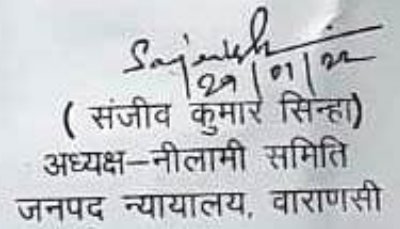 29/01/22
( संजीव कुमार सिन्हा)
अध्यक्ष–नीलामी समिति
जनपद न्यायालय, वाराणसी